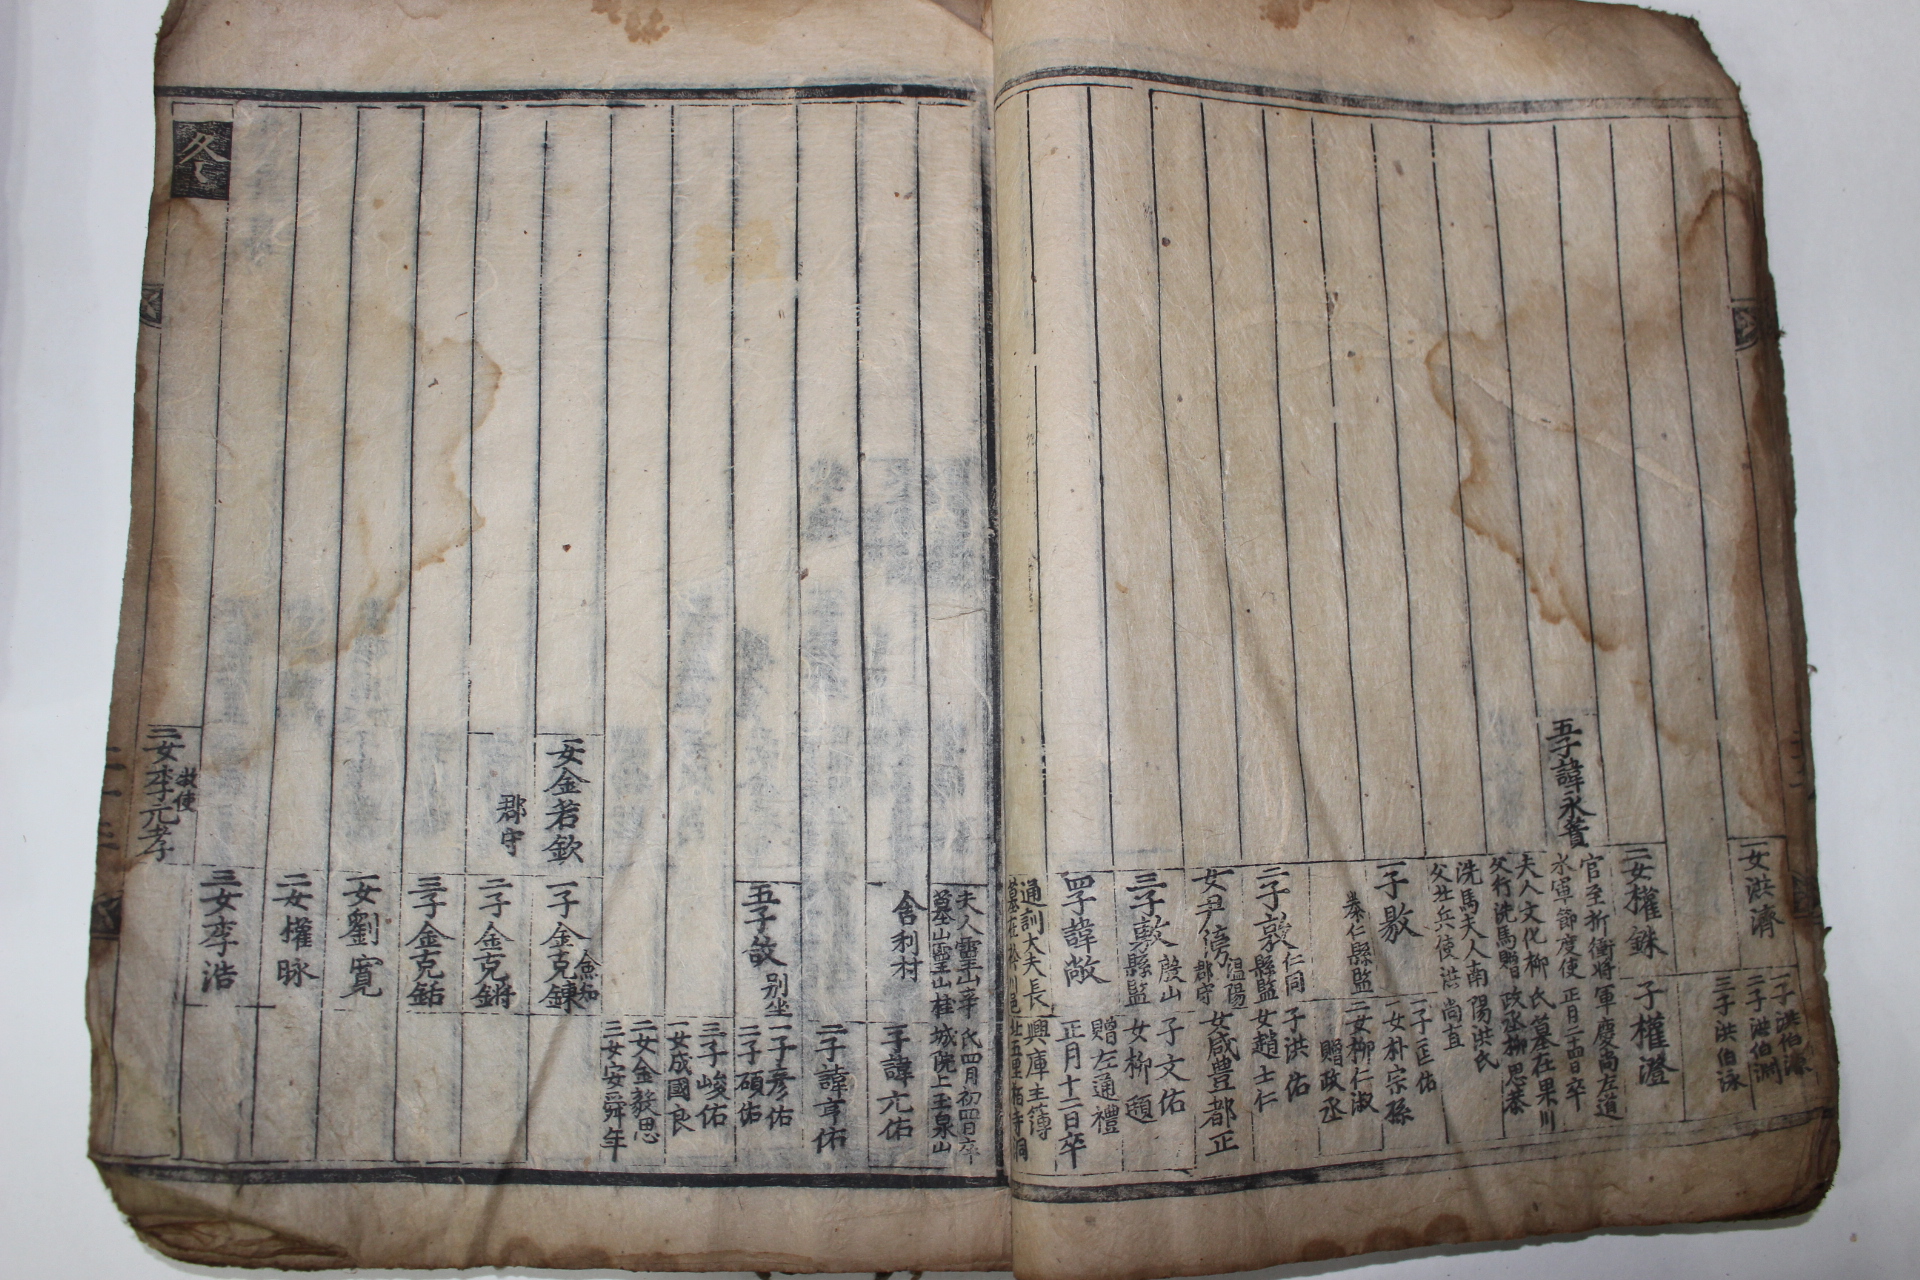 一女洪濟
一子洪伯濂
二子洪伯淵
三子洪伯泳
二女權銖
子權澄
五子諱永蕡
官至折衝將軍慶尚左道
水軍節度使正月二十四日卒
夫人文化柳氏墓在果川
父行洗馬贈政丞柳思恭
洗馬夫人南陽洪氏
父壮兵使洪尚直
一子敭
泰仁縣監
一子匡佑
一女朴宗孫
二女柳仁淑
贈政丞
二子敦
仁同縣監
子洪佑
女趙士仁
女尹滂
溫陽郡守
女咸豊都正
三子敷
殷山縣監
子文佑
女柳䫨
四子諱敞
贈左通禮
正月十二日卒
通訓大夫長興庫主簿
夫人靈山辛氏四月初四日卒
墓山靈山桂城院上玉泉山
舍利村
子諱元佑
二子諱享佑
五子敆
別坐
一子彥佑
二子碩佑
三子峻佑
一女成國良
二女金毅思
三女安舜年
一女金若欽
郡守
一子金克鍊
僉知
二子金克鏘
三子金克銛
一女劉寬
二女權眎
三女李浩
三女李元孝
牧使